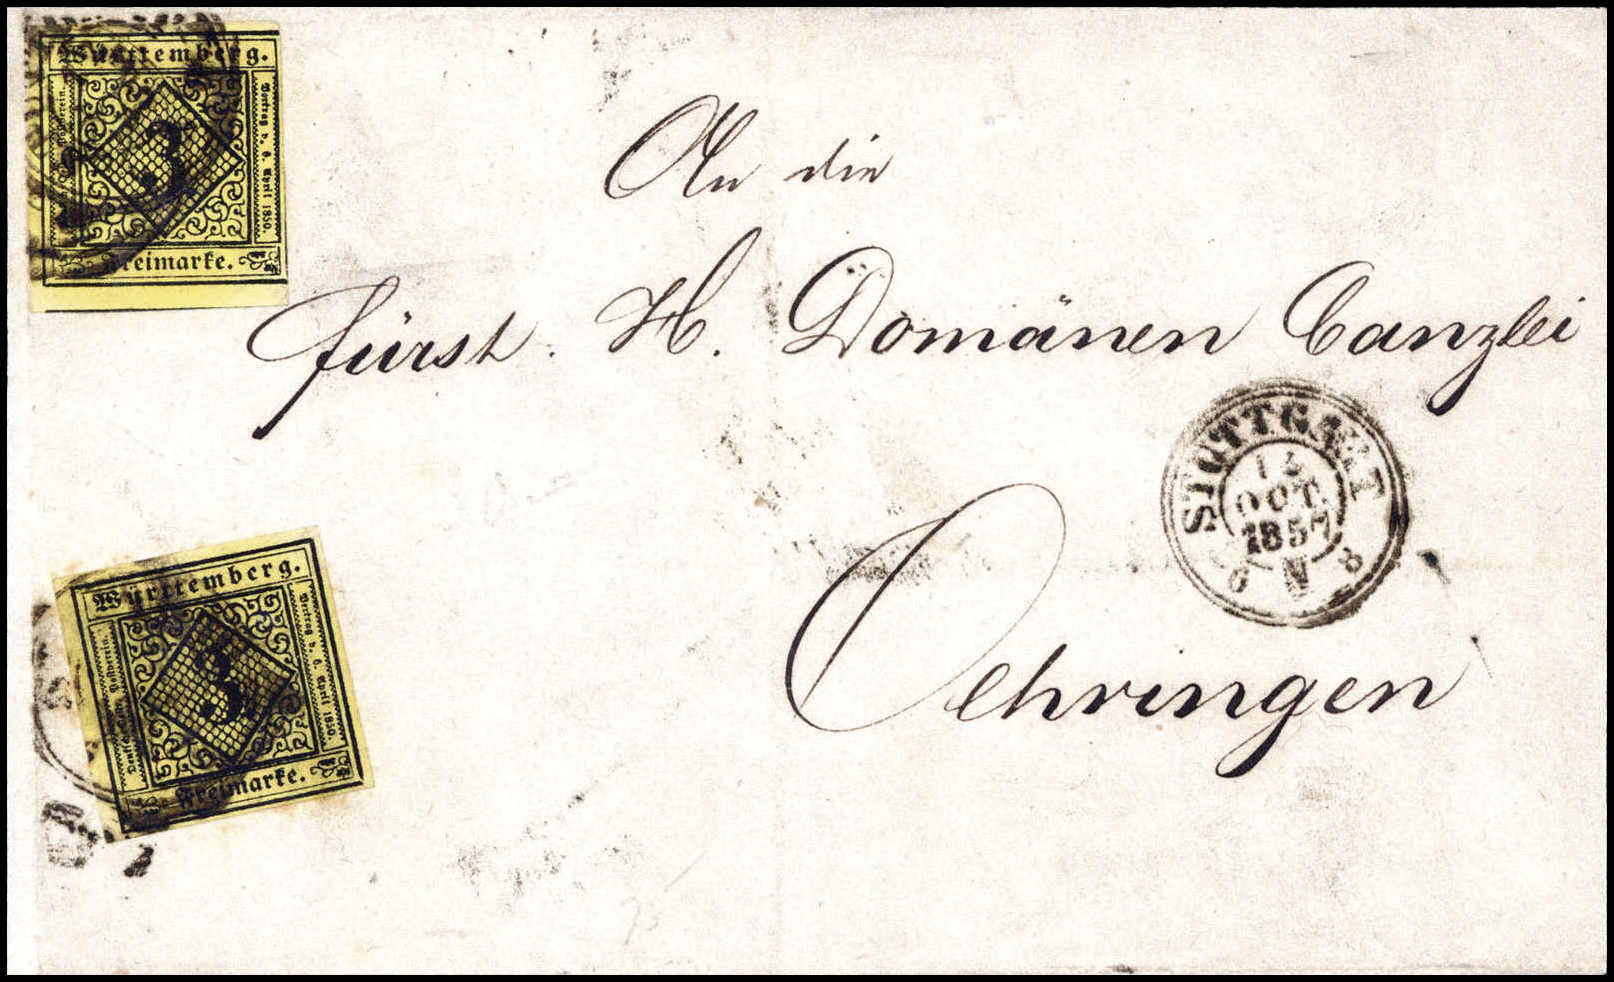 Württemberg.
Vertrag v. 6. April 1850.
3
Freimarke.
An die
Fürst. H. Domänen Canzlei
STUTTGART
OCT.
1857
N 8
Oehringen
Württemberg.
Deutsch-Oestr. Postverein.
Vertrag v. 6. April 1850.
3
Freimarke.